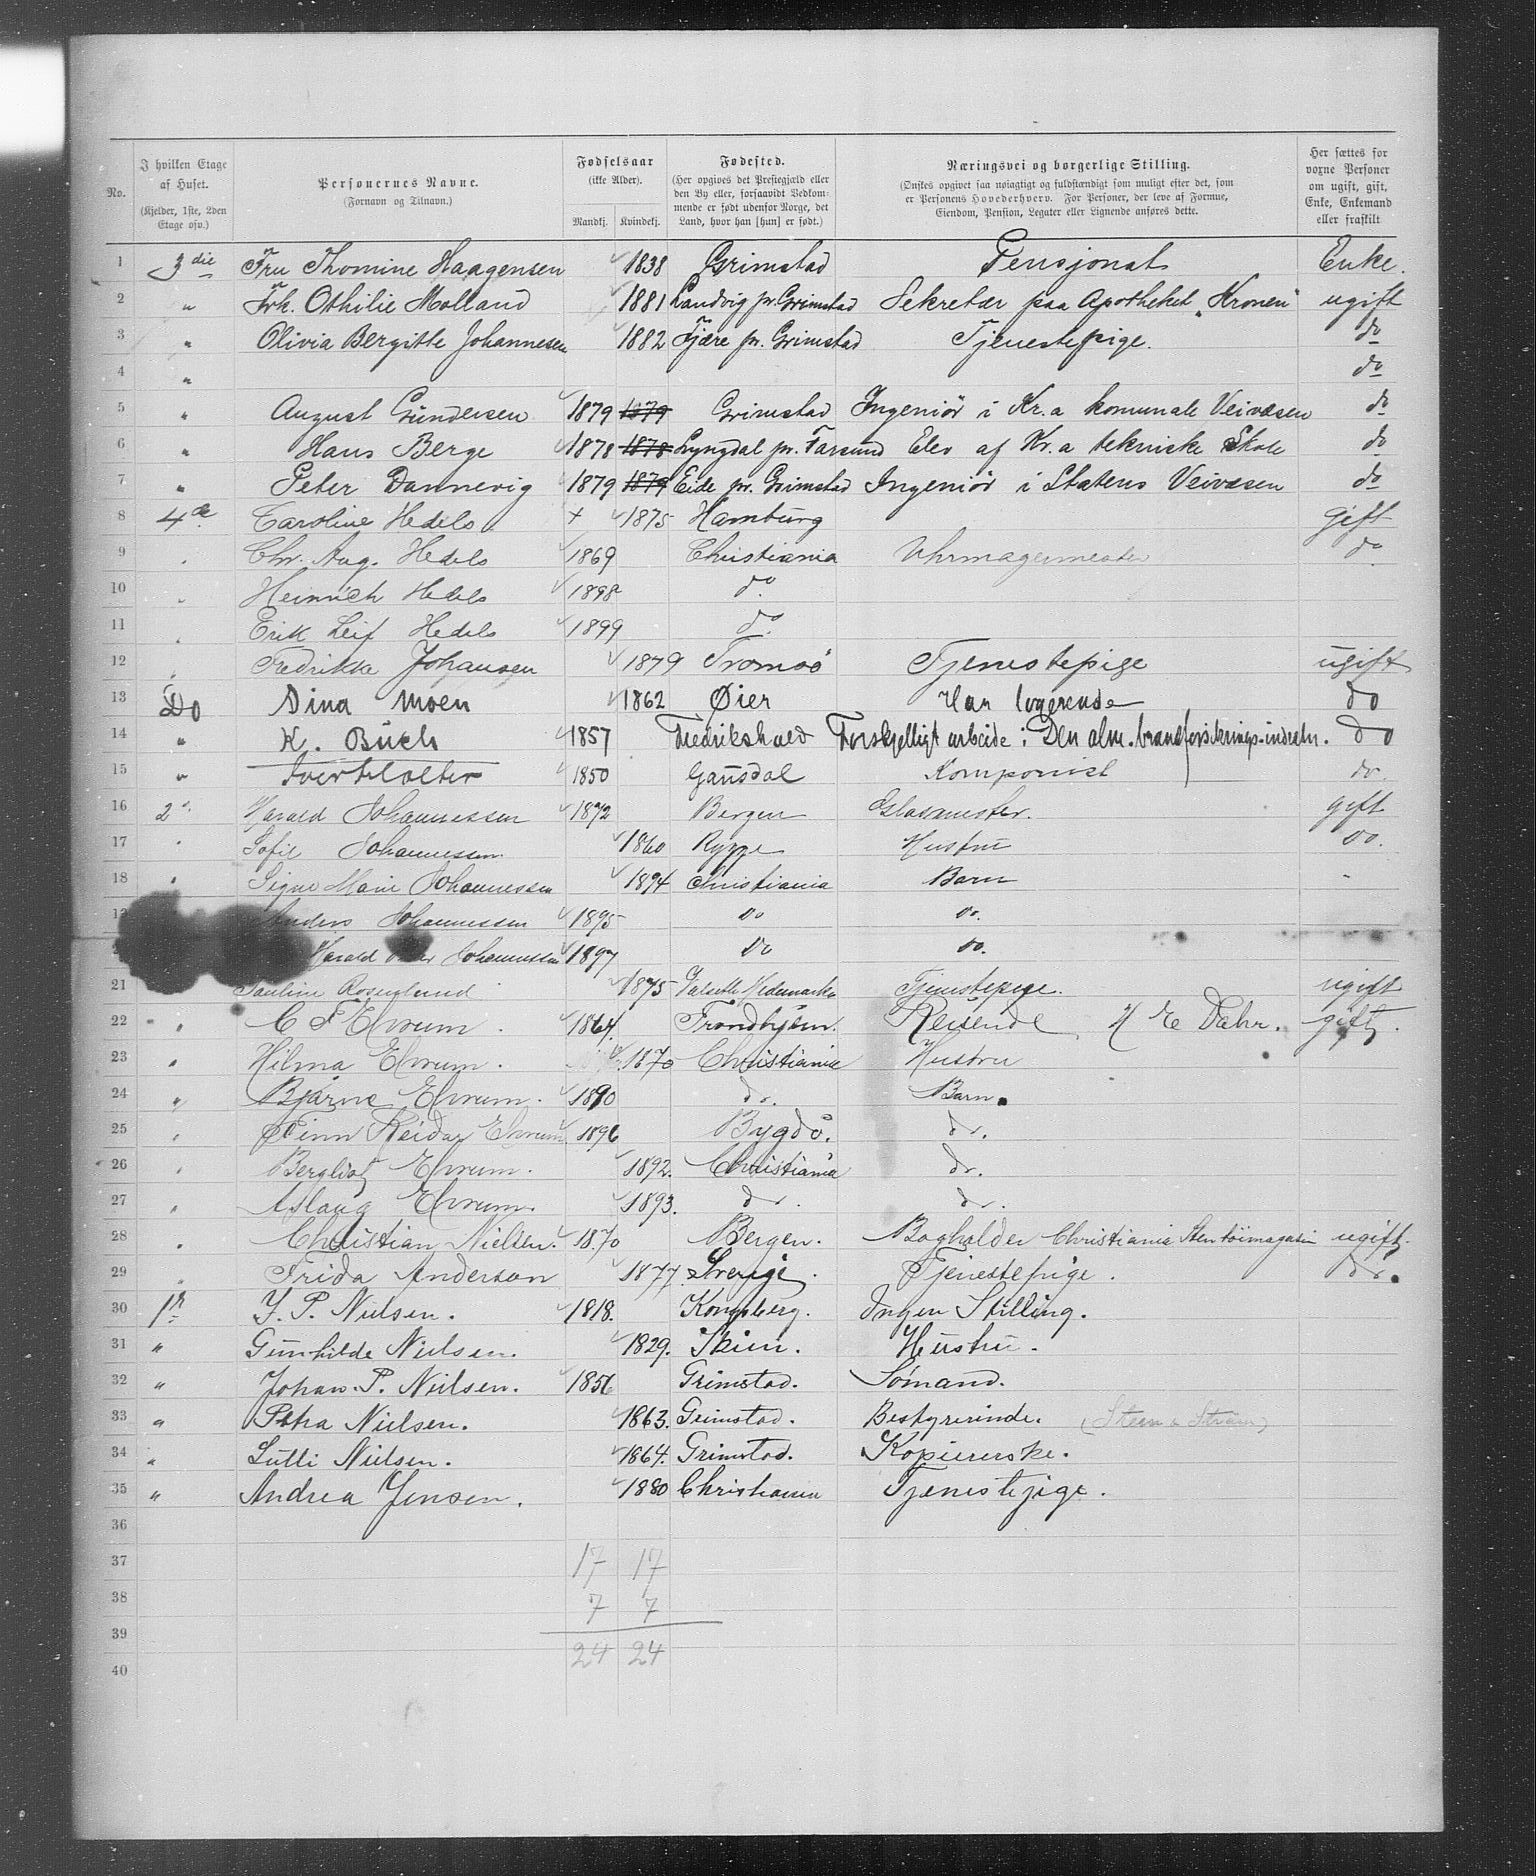 No.
I hvilken Etage af Huset. (Kjelder, 1ste, 2den Etage osv.)
Personernes Navne. (Fornavn og Tilnavn.)
Fødselsaar (ikke Alder). Mandkj. Kvindekj.
Fødested. (Her opgives det Prestegjæld eller den By eller, forsaavidt Vedkommende er født udenfor Norge, det Land, hvor han [hun] er født.)
Næringsvei og borgerlige Stilling. (Ønskes opgivet saa nøiagtigt og fuldstændigt som muligt efter det, som er Personens Hovederhverv. For Personer, der leve af Formue, Eiendom, Pension, Legater eller Lignende anføres dette.
Her sættes for voxne Personer om ugift, gift, Enke, Enkemand eller fraskilt
1 3die Fru Thomine Haagensen 1838 Grimstad Pensjonat Enke.
2 " Frk. Othilie Molland 1881 Landvig pr. Grimstad Sekretær paa Apotheket „Kronen" ugift
3 " Olivia Bergitte Johannesen 1882 Fjære pr. Grimstad Tjenestepige. do
4 " do
5 " August Gundersen 1879 1879 Grimstad Ingeniör i Kr.a komunale Veivæsen do
6 " Hans Berge 1878 1878 Lyngdal pr. Farsund Elev af Kr.a tekniske Skole do
7 " Peter Dannevig 1879 1879 Eide pr. Grimstad Ingeniör i Statens Veivæsen do
8 4de Caroline Hedels + 1875 Hamburg gift
9 " Chr. Aug. Hedels 1869 Christiania Uhrmagermester do
10 " Heinrich Hedels 1898 do.
11 " Erik Leif Hedels 1899 do.
12 " Fredrikke Johansen 1879 Tromsö Tjenestepige ugift
13 Do Dina Moen 1862 Øier Har logerende do
14 " K. Buch 1857 Fredrikshald Forskjelligt arbeide i Den alm. brandforsikrings-indretn. do
15 " 1850 Gausdal Komponist do.
16 2. Harald Johannessen 1872 Bergen Glasmester. gift
17 " Sofie Johannessen 1860 Rygge Hustru do.
18 " Signe Marie Johannessen 1894 Christiania Barn "
Anders Johannessen 1895 do do.
Harald Johannessen 1897 do do.
21 Pauline Rosenlund 1875 Hedemarken Tjenestepige. ugift
22 " C F Ehrum. 1864. Trondhjem. Reisende H E Dahr. gift.
23 " Hilma Ehrum. 1870 Christiania Hustru
24 " Bjarne Ehrum. 1890 do. Barn.
25 " Finn Reidar Ehrum 1896 Bygdö. do.
26 " Bergliot Ehrum. 1892. Christiania do.
27 " Aslaug Ehrum. 1893. do. do.
28 " Christian Nielsen. 1870 Bergen. Bogholder Christiania Stentöimagasin ugift.
29 " Frida Anderson 1877 Sverige. Tjenestepige. do.
30 1st J. P. Nielsen. 1818. Kongsberg. Ingen Stilling.
31 " Gunhilde Nielsen. 1829. Skien. Hustru.
32 " Johan. P. Nielsen. 1856 Grimstad. Sömand.
33 " Petra Nielsen. 1863. Grimstad. Bestyrerinde. (Steen & Ström)
34 " Lulli Nielsen. 1864. Grimstad. Kopiererske.
35 " Andrea Jensen. 1880 Christiania Tjenestepige.
36
37 17 17
38 7 7
39 24 24
40